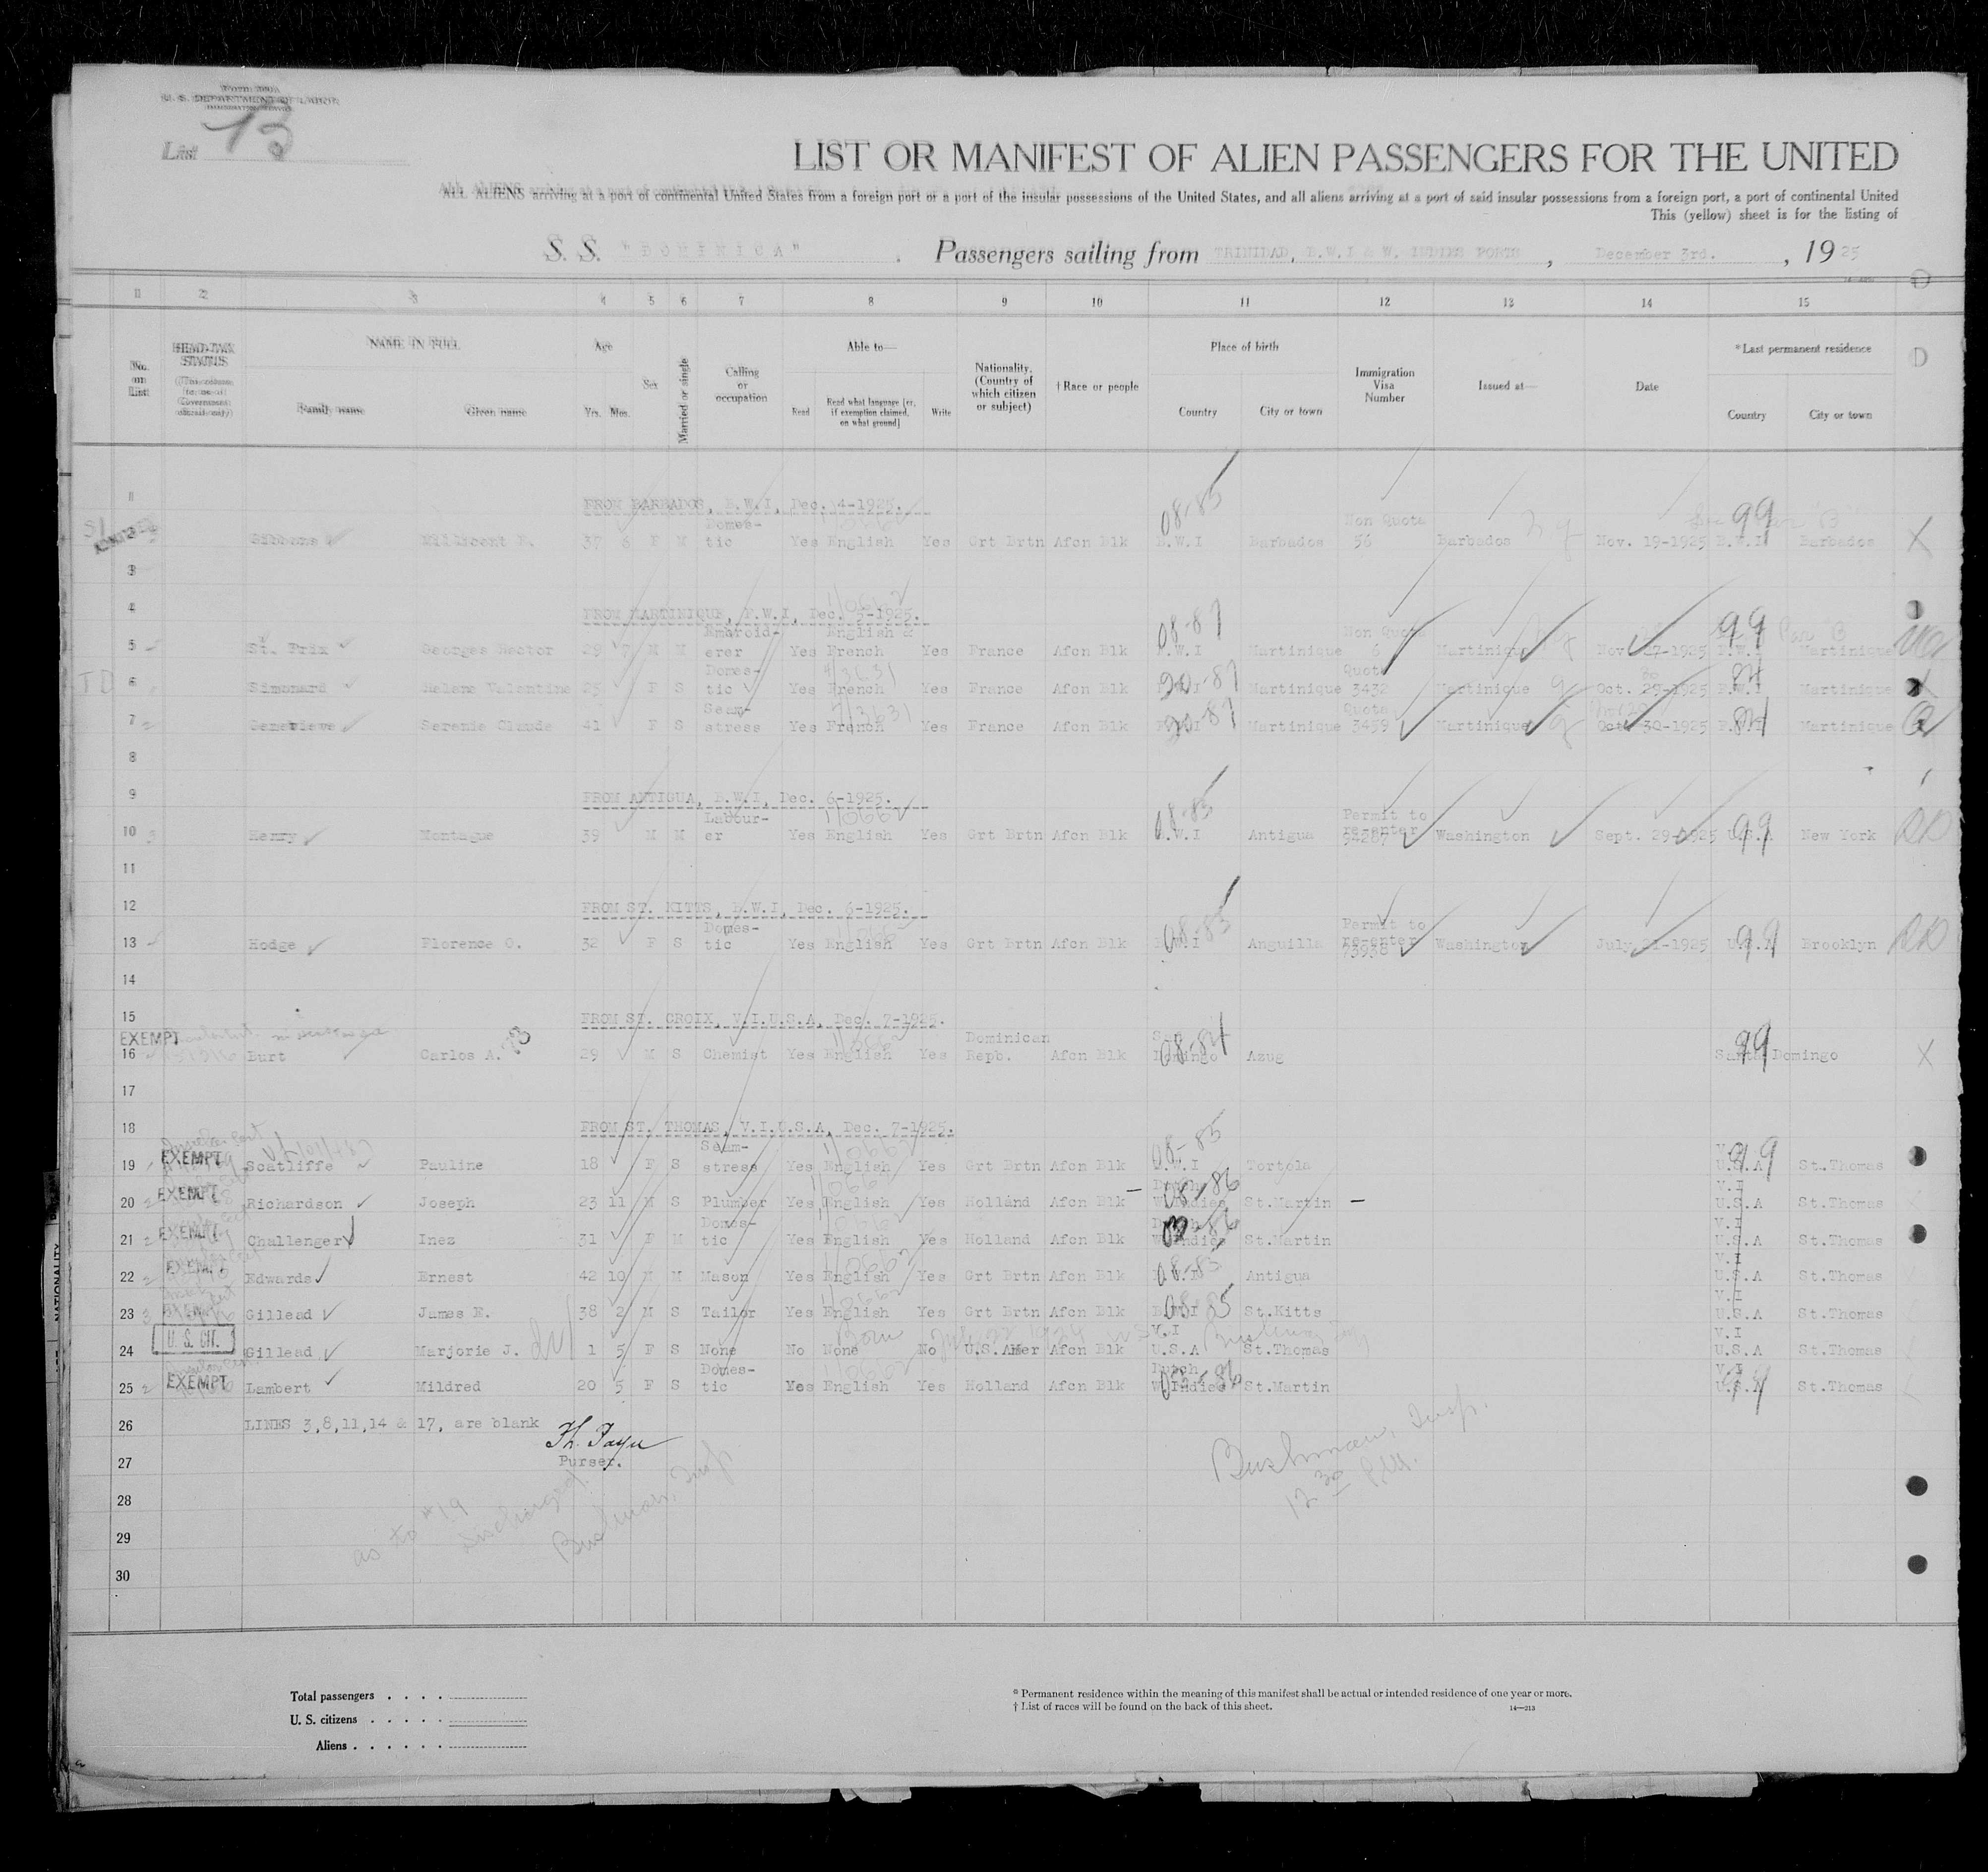 Form 500A
U. S. DEPARTMENT OF LABOR
List 13
LIST OR MANIFEST OF ALIEN PASSENGERS FOR THE UNITED
ALL ALIENS arriving at a port of continental United States from a foreign port or a port of the insular possessions of the United States, and all aliens arriving at a port of said insular possessions from a foreign port, a port of continental United
This (yellow) sheet is for the listing of
S. S. "DOMINICA" , Passengers sailing from TRINIDAD, B.W.I & W. INDIES PORTS , December 3rd. , 1925
1 2 3 4 5 6 7 8 9 10 11 12 13 14 15
No. on List
HEAD-TAX STATUS (This column for use of Government officials only)
NAME IN FULL
Family name Given name
Age
Yrs. Mos.
Sex
Married or single
Calling or occupation
Able to—
Read Read what language [or, if exemption claimed, on what ground] Write
Nationality. (Country of which citizen or subject)
† Race or people
Place of birth
Country City or town
Immigration Visa Number
Issued at—
Date
* Last permanent residence
Country City or town
1 FROM BARBADOS, B.W.I, Dec. 4-1925.
2 Gibbons Millicent E. 37 6 F M Domes-tic Yes English Yes Grt Brtn Afcn Blk B.W.I Barbados Non Quota 56 Barbados Nov. 19-1925 B.W.I Barbados
08-85 99 X
3
4 FROM MARTINIQUE, F.W.I, Dec. 5-1925.
5 St. Prix Georges Hector 29 7 M M Embroid-erer Yes English & French Yes France Afcn Blk F.W.I Martinique Non Quota 6 Martinique Nov. 27-1925 F.W.I Martinique
08-87 99
6 Simonard Helene Valentine 25 F S Domes-tic Yes French Yes France Afcn Blk F.W.I Martinique Quota 3432 Martinique Oct. 29-1925 F.W.I Martinique
20-87 84 X
7 Genevieve Serenie Claude 41 F S Seam-stress Yes French Yes France Afcn Blk F.W.I Martinique Quota 3459 Martinique Oct. 30-1925 F.W.I Martinique
20-87 84 Q
8
9 FROM ANTIGUA, B.W.I, Dec. 6-1925.
10 Henry Montague 39 M M Labour-er Yes English Yes Grt Brtn Afcn Blk B.W.I Antigua Permit to re-enter 54287 Washington Sept. 29-1925 U.S.A New York
08-85 99
11
12 FROM ST. KITTS, B.W.I, Dec. 6-1925.
13 Hodge Florence O. 32 F S Domes-tic Yes English Yes Grt Brtn Afcn Blk B.W.I Anguilla Permit to re-enter 73938 Washington July 21-1925 U.S.A Brooklyn
08-85 99
14
15 FROM ST. CROIX, V.I.U.S.A, Dec. 7-1925.
EXEMPT
16 Burt Carlos A. 29 M S Chemist Yes English Yes Dominican Repb. Afcn Blk San Domingo Azug Santo Domingo
08-84 99 X
17
18 FROM ST. THOMAS, V.I.U.S.A, Dec. 7-1925.
19 EXEMPT Scatliffe Pauline 18 F S Seam-stress Yes English Yes Grt Brtn Afcn Blk B.W.I Tortola V.I U.S.A St.Thomas
08-85 99
20 EXEMPT Richardson Joseph 23 11 M S Plumber Yes English Yes Holland Afcn Blk Dutch W.Indies St.Martin V.I U.S.A St.Thomas
08-86
21 EXEMPT Challenger Inez 31 F M Domes-tic Yes English Yes Holland Afcn Blk Dutch W.Indies St.Martin V.I U.S.A St.Thomas
22 EXEMPT Edwards Ernest 42 10 M M Mason Yes English Yes Grt Brtn Afcn Blk B.W.I Antigua V.I U.S.A St.Thomas
08-85
23 Gillead James E. 38 2 M S Tailor Yes English Yes Grt Brtn Afcn Blk B.W.I St.Kitts V.I U.S.A St.Thomas
24 U. S. CIT. Gillead Marjorie J. 1 5 F S None No None No U.S.Amer Afcn Blk V.I U.S.A St.Thomas V.I U.S.A St.Thomas
Born
25 EXEMPT Lambert Mildred 20 5 F S Domes-tic Yes English Yes Holland Afcn Blk Dutch W.Indies St.Martin V.I U.S.A St.Thomas
26 LINES 3,8,11,14 & 17, are blank
27 Purser.
28
29
30
as to #19
discharged.
Bushman, Insp
Bushman, Insp.
12 30 P.M.
Total passengers
U. S. citizens
Aliens
* Permanent residence within the meaning of this manifest shall be actual or intended residence of one year or more.
† List of races will be found on the back of this sheet.
14—213
NATIONALITY